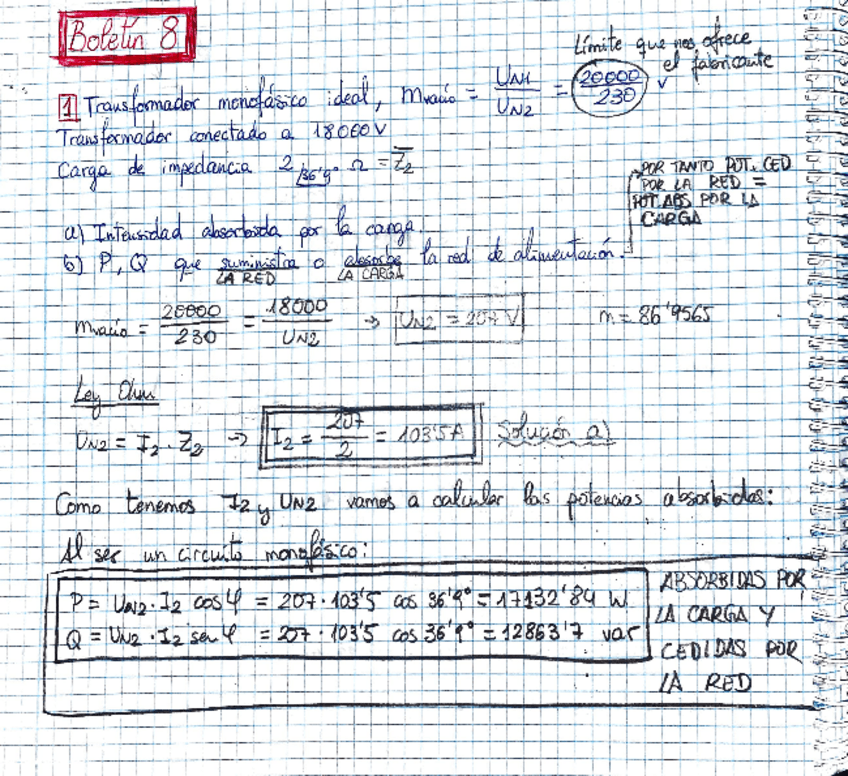 Boletín 8
Límite que nos ofrece
el fabricante
1 Transformador monofásico ideal, mvacío = UN1 / UN2 = 20000 / 230 V
Transformador conectado a 18000V
Carga de impedancia 2 /36'9° Ω = Z̅2
POR TANTO POT. CED
POR LA RED =
POT. ABS POR LA
CARGA
a) Intensidad absorbida por la carga.
b) P, Q que suministra o absorbe la red de alimentación.
LA RED LA CARGA
mvacío = 20000 / 230 = 18000 / UN2 → UN2 = 207 V m = 86'9565
Ley Ohm
UN2 = I2 · Z2 → I2 = 207 / 2 = 103'5A Solución a)
Como tenemos I2 y UN2 vamos a calcular las potencias absorbidas:
Al ser un circuito monofásico:
P = UN2 · I2 cos φ = 207 · 103'5 cos 36'9° = 17132'84 W
Q = UN2 · I2 sen φ = 207 · 103'5 cos 36'9° = 12863'7 var
ABSORBIDAS POR
LA CARGA Y
CEDIDAS POR
LA RED